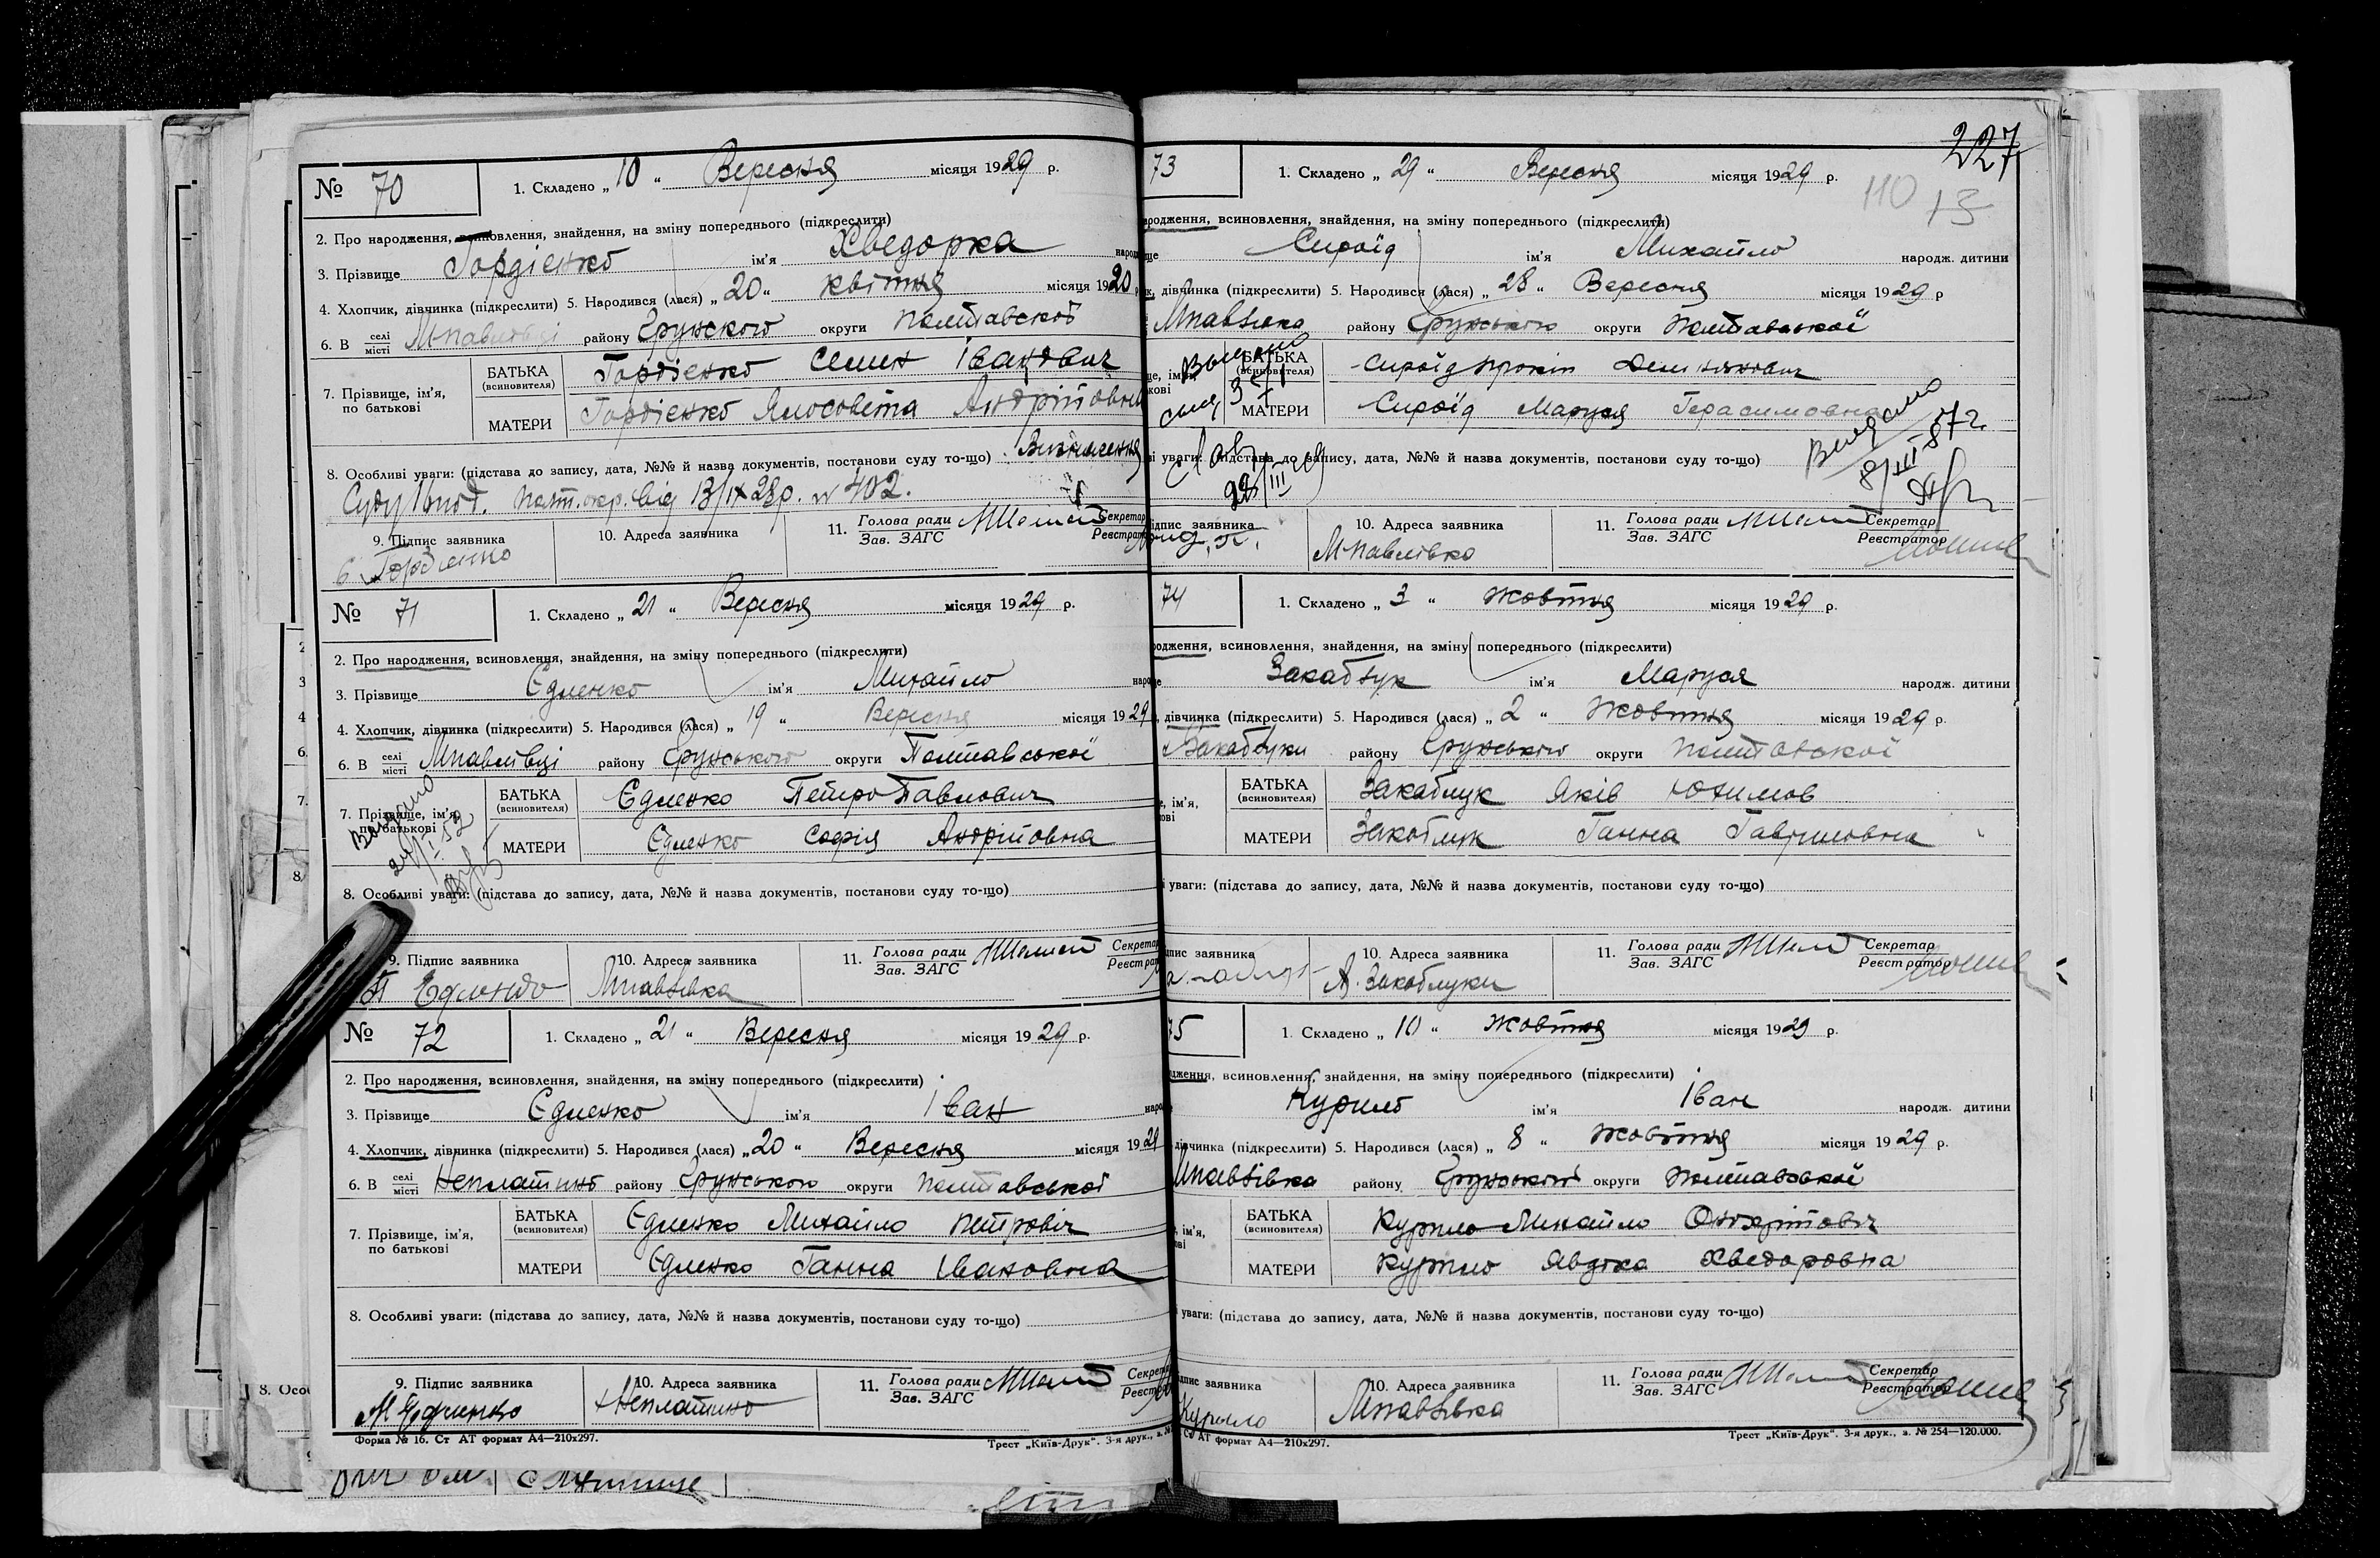 № 70
1. Складено „ 10 “ Вересня місяця 1929 р.
2. Про народження, всиновлення, знайдення, на зміну попереднього (підкреслити)
3. Прізвище Гордієнко ім'я Хведорка
4. Хлопчик, дівчинка (підкреслити) 5. Народився (лася) „ 20 “ квітня місяця 1920
6. В селі місті Мпавлівці району Грунского округи Полтавскоі
7. Прізвище, ім'я, по батькові
БАТЬКА (всиновителя) Гордієнко Семен Іванович
МАТЕРИ Гордієнко Ялосовета Андріівна
8. Особливі уваги: (підстава до запису, дата, №№ й назва документів, постанови суду то-що)
Суду Полт. окр. від 13/IX 28р. № 402.
9. Підпис заявника Гордіенко
10. Адреса заявника
11. Голова ради Зав. ЗАГС Секретар Реєстратор
№ 71
1. Складено „ 21 “ Вересня місяця 1929 р.
2. Про народження, всиновлення, знайдення, на зміну попереднього (підкреслити)
3. Прізвище Єдленко ім'я Михайло
4. Хлопчик, дівчинка (підкреслити) 5. Народився (лася) „ 19 “ Вересня місяця 1929
6. В селі місті Мпавлівці району Грунського округи Полтавської
7. Прізвище, ім'я, по батькові
БАТЬКА (всиновителя) Єдленко Петро Павлович
МАТЕРИ Єдленко Софія Андріівна
Видано
8. Особливі уваги: (підстава до запису, дата, №№ й назва документів, постанови суду то-що)
9. Підпис заявника П Едленко
10. Адреса заявника Мпавлівка
11. Голова ради Зав. ЗАГС
№ 72
1. Складено „ 21 “ Вересня місяця 1929 р.
2. Про народження, всиновлення, знайдення, на зміну попереднього (підкреслити)
3. Прізвище Єдленко ім'я Іван
4. Хлопчик, дівчинка (підкреслити) 5. Народився (лася) „ 20 “ Вересня місяця 1929
6. В селі місті Неплатино району Грунського округи Полтавської
7. Прізвище, ім'я, по батькові
БАТЬКА (всиновителя) Єдленко Михайло Петровіч
МАТЕРИ Єдленко Ганна Івановна
8. Особливі уваги: (підстава до запису, дата, №№ й назва документів, постанови суду то-що)
9. Підпис заявника М Едленко
10. Адреса заявника Неплатино
11. Голова ради Зав. ЗАГС
Форма № 16. Ст АТ формат А4—210х297.
Трест „Київ-Друк“. 3-я друк.,
227
110 13
73
1. Складено „ 29 “ Вересня місяця 1929 р.
всиновлення, знайдення, на зміну попереднього (підкреслити)
Сироїд ім'я Михайло народж. дитини
дівчинка (підкреслити) 5. Народився (лася) „ 28 “ Вересня місяця 1929 р
Мпавлівка району Грунського округи Полтавської
БАТЬКА (всиновителя) Сироїд Прокіп
МАТЕРИ Сироїд Маруся Герасимовна
уваги: (підстава до запису, дата, №№ й назва документів, постанови суду то-що)
підпис заявника
10. Адреса заявника Мпавлівка
11. Голова ради Зав. ЗАГС Секретар Реєстратор
74
1. Складено „ 3 “ Жовтня місяця 1929 р.
всиновлення, знайдення, на зміну попереднього (підкреслити)
Закаблук ім'я Маруся народж. дитини
дівчинка (підкреслити) 5. Народився (лася) „ 2 “ Жовтня місяця 1929 р.
Закаблуки району Грунського округи Полтавської
БАТЬКА (всиновителя) Закаблук Яків Юхимов
МАТЕРИ Закаблук Ганна Гавриловна
уваги: (підстава до запису, дата, №№ й назва документів, постанови суду то-що)
10. Адреса заявника Закаблуки
11. Голова ради Зав. ЗАГС Секретар Реєстратор
75
1. Складено „ 10 “ Жовтня місяця 1929 р.
всиновлення, знайдення, на зміну попереднього (підкреслити)
Курило ім'я Іван народж. дитини
дівчинка (підкреслити) 5. Народився (лася) „ 8 “ Жовтня місяця 1929 р.
Мпавлівка району Грунського округи Полтавської
БАТЬКА (всиновителя) Курило Михайло
МАТЕРИ Курило Явдоха Хведоровна
уваги: (підстава до запису, дата, №№ й назва документів, постанови суду то-що)
заявника Курыло
10. Адреса заявника Мпавлівка
11. Голова ради Зав. ЗАГС Секретар Реєстратор
Ст АТ формат А4—210х297.
Трест „Київ-Друк“. 3-я друк., з. № 254—120.000.